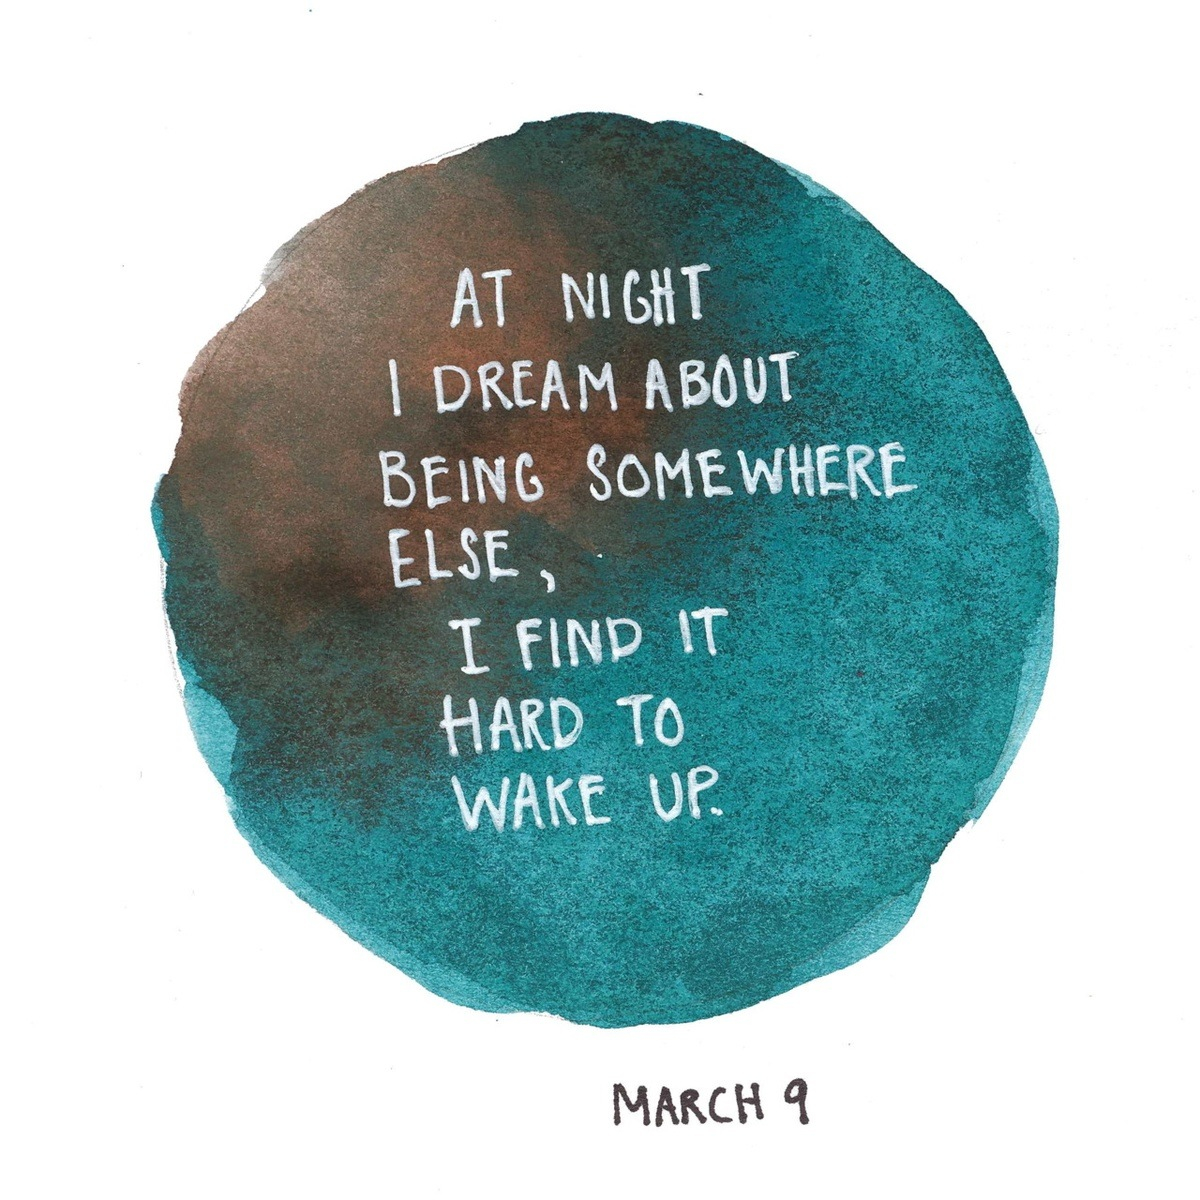 AT NIGHT
I DREAM ABOUT
BEING SOMEWHERE
ELSE,
I FIND IT
HARD TO
WAKE UP.
MARCH 9